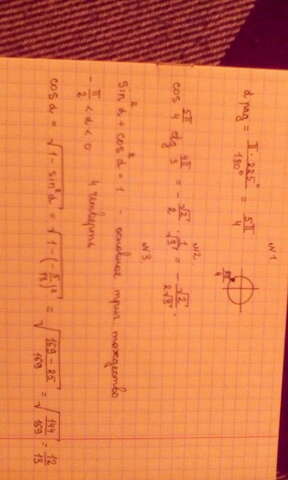 N1.
α рад = π · 225° / 180° = 5π / 4
5π / 4
N2.
cos 5π / 4 ctg 4π / 3 = - √2 / 2 · 1 / √3 = - √2 / 2√3.
N3.
sin²α + cos²α = 1 - основное триг тождество
- π / 2 < α < 0 4 четверть
cos α = √(1 - sin²α) = √(1 - (- 5 / 13)²) = √((169 - 25) / 169) = √(144 / 169) = 12 / 13